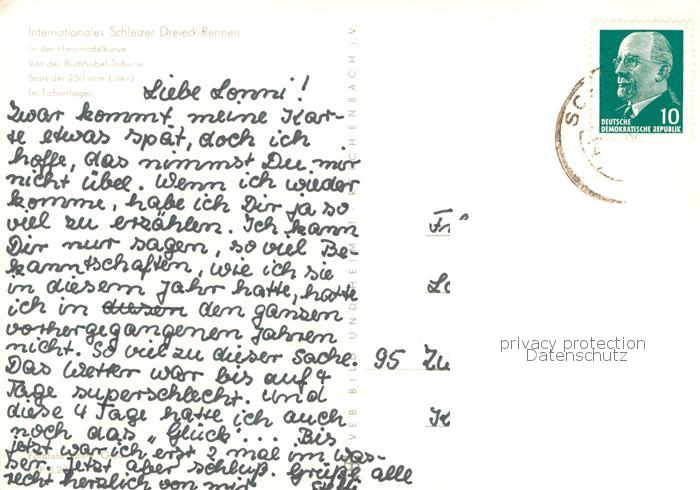 Internationales Schleizer Dreieck-Rennen
In der Haarnadelkurve
Vor der Buchhübel-Tribüne
Start der 250 ccm Lizenz
Im Fahrerlager
Liebe Lonni!
Zwar kommt meine Kar-
te etwas spät, doch ich
hoffe, das nimmst Du mir
nicht übel. Wenn ich wieder
komme, habe ich Dir ja so
viel zu erzählen. Ich kann
Dir nur sagen, so viel Be-
kanntschaften, wie ich sie
in diesem Jahr hatte, hatte
ich in diesen den ganzen
vorhergegangenen Jahren
nicht. So viel zu dieser Sache.
Das Wetter war bis auf 4
Tage superschlecht. Und
diese 4 Tage hatte ich auch
noch das "Glück"... Bis
jetzt war ich erst 2 mal im Was-
ser. Jetzt aber Schluß. Grüße alle
recht herzlich von mir
VEB BILD UND HEIMAT REICHENBACH I.V.
DEUTSCHE
DEMOKRATISCHE REPUBLIK
10
95
privacy protection
Datenschutz